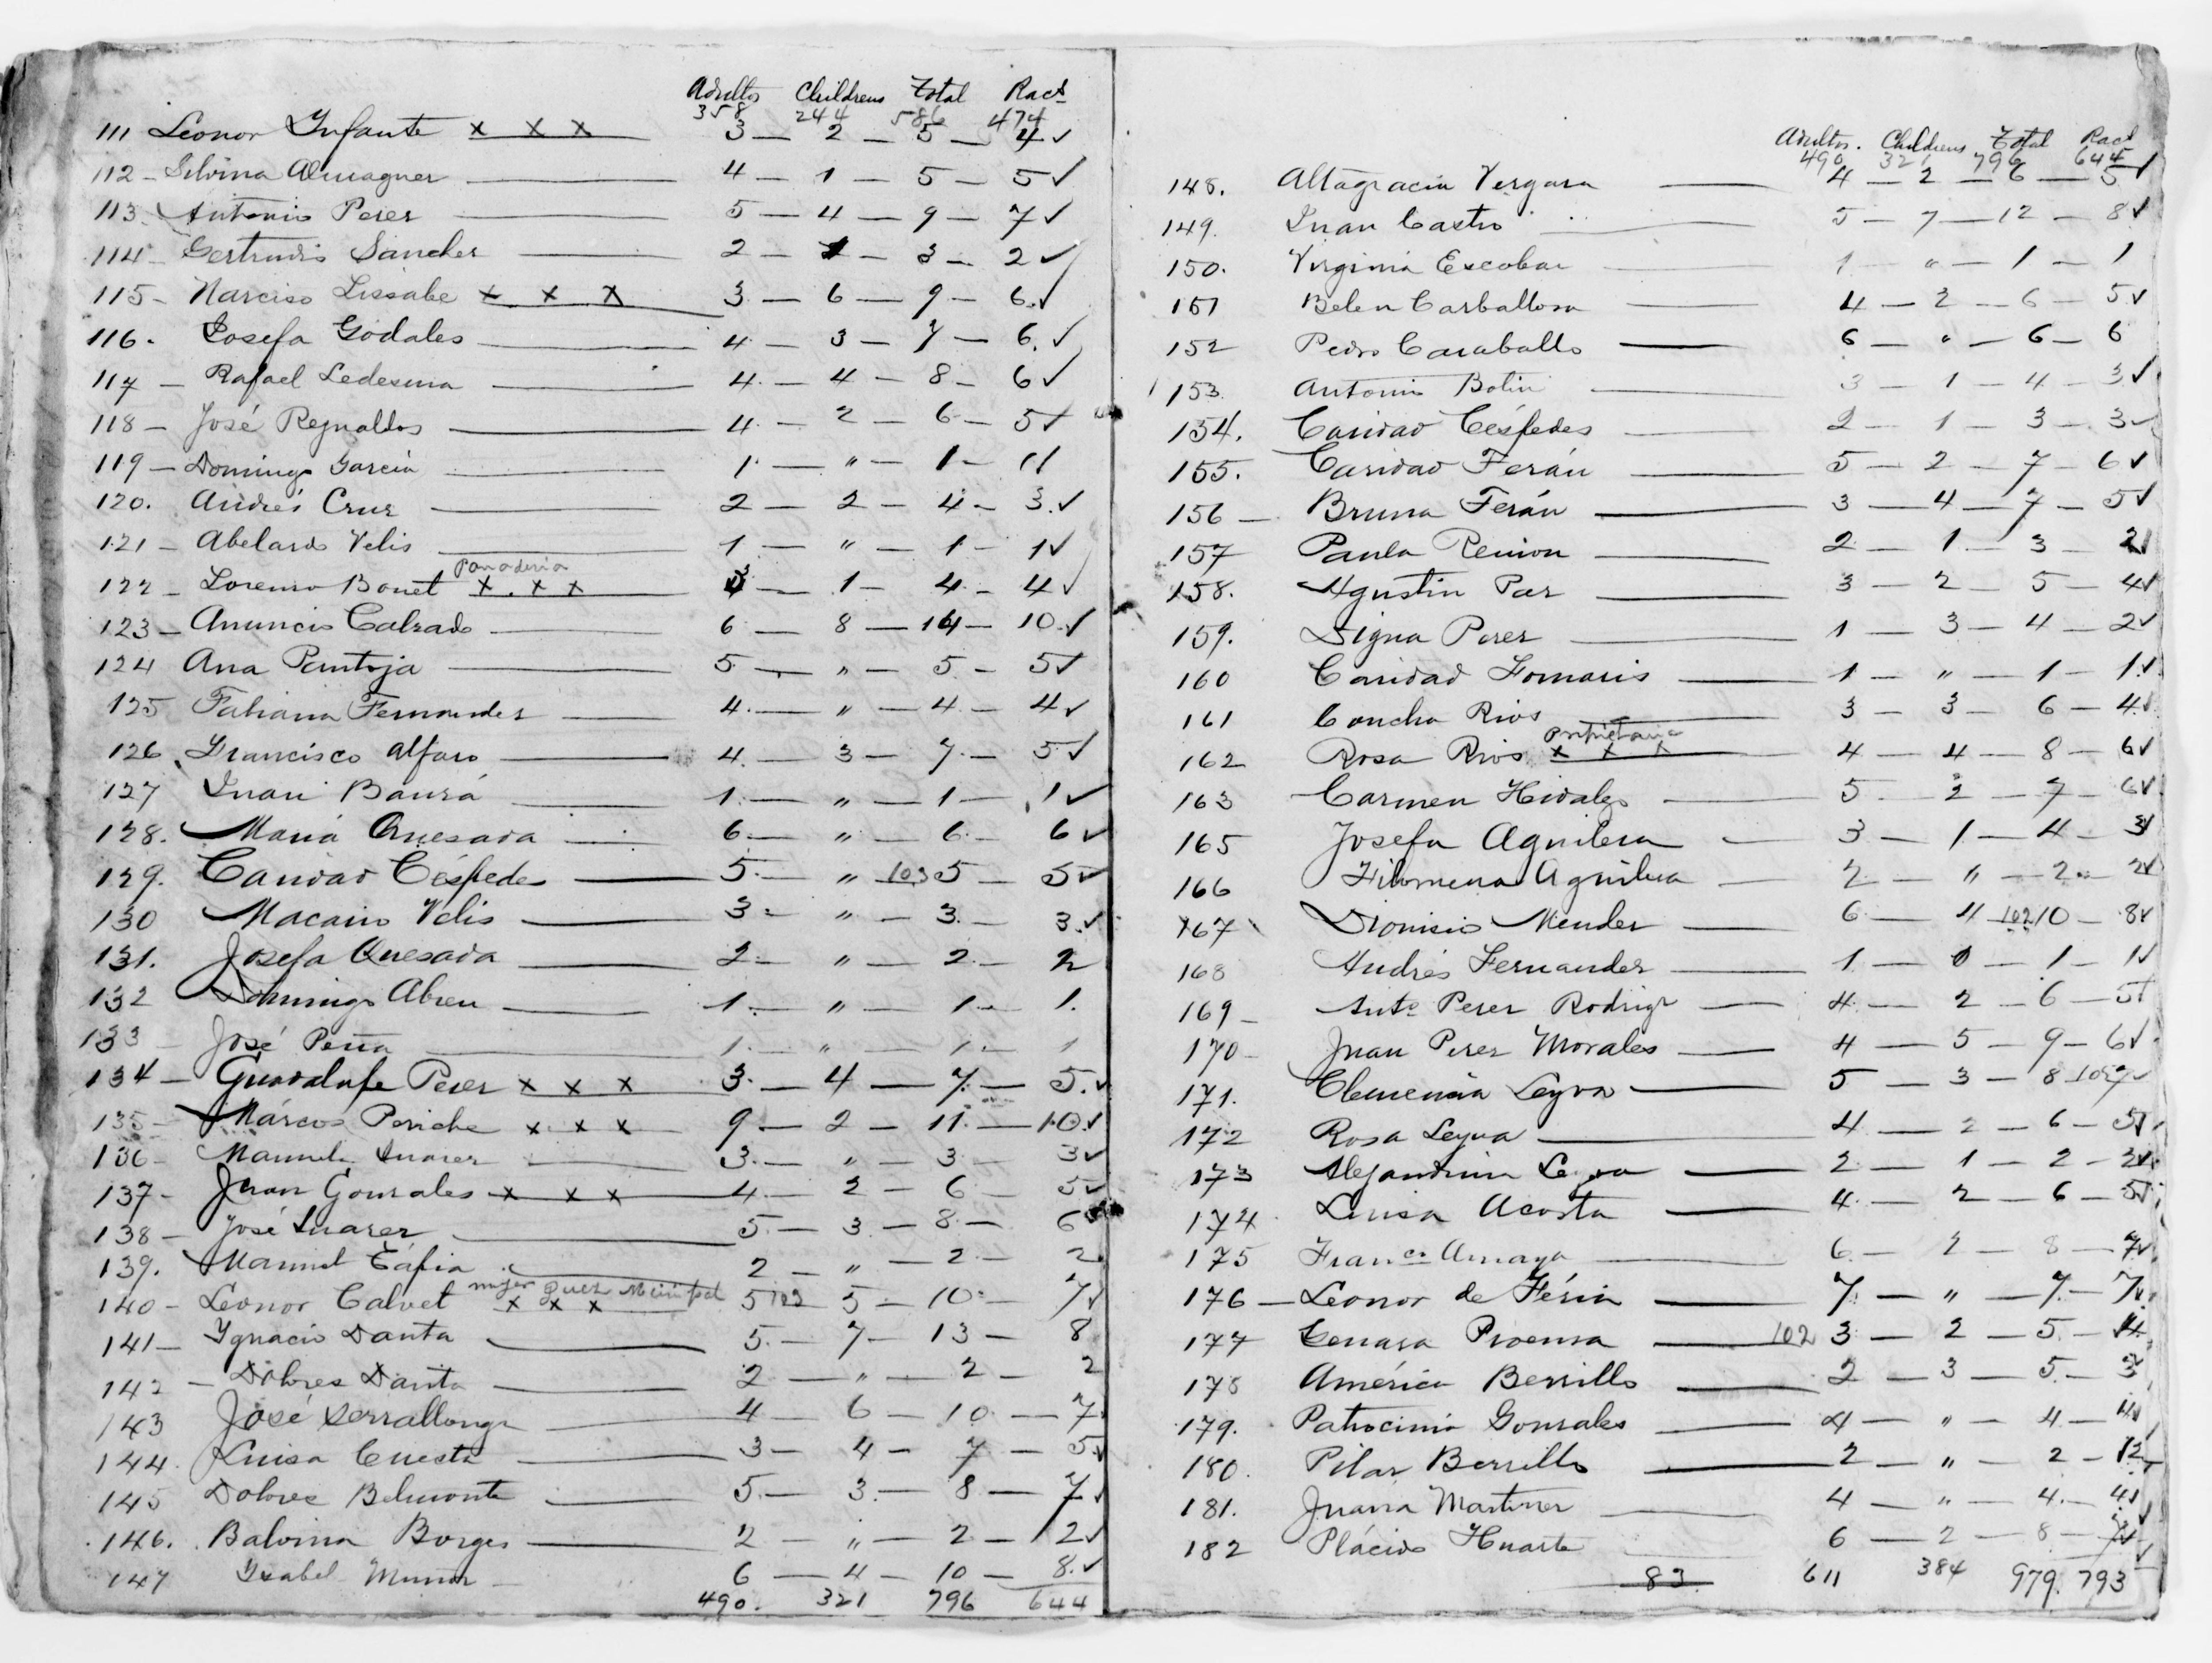 Adultos Childrens Total Racs
358 244 586 474
111 Leonor Ynfante x x x 3 — 2 — 5 — 4 ✓
112 - Silvina Almaguer 4 — 1 — 5 — 5 ✓
113. Antonio Perez 5 — 4 — 9 — 7 ✓
114 - Gertrudis Sanchez 2 — 1 — 3 — 2 ✓
115 - Narciso Lissabe x x x 3 — 6 — 9 — 6. ✓
116. Josefa Godales 4 — 3 — 7 — 6. ✓
117 - Rafael Ledesma 4. — 4 — 8 — 6 ✓
118 - José Reynaldos 4. — 2 — 6 — 5 ✓
119 - Domingo Garcia 1. — " — 1 — 1
120. Andrés Cruz 2 — 2 — 4 — 3. ✓
121 - Abelardo Velis 1. — " — 1 — 1 ✓
Panaderia
122 - Lorenzo Bonet x . x x 3 — 1 — 4 — 4 ✓
123 - Anuncio Calzado 6 — 8 — 14 — 10. ✓
124 Ana Pantoja 5. — " — 5 — 5 ✓
125 Fabiana Fernandez 4. — " — 4. — 4 ✓
126. Francisco Alfaro 4. — 3 — 7. — 5 ✓
127 Juan Bauzá 1. — " — 1 — 1 ✓
128. Maria Quesada 6. — " — 6. — 6 ✓
129. Caridad Céspedes 5. — " 103 5 — 5 ✓
130 Macario Velis 3. — " — 3. — 3. ✓
131. Josefa Quesada 2. — " — 2. — 2
132 Domingo Abreu 1. — " — 1. — 1.
133 José Peña 1. — " — 1. — 1
134 - Guadalupe Perez x x x 3. — 4 — 7. — 5. ✓
135 - Márcos Periche x x x 9. — 2 — 11. — 10. ✓
136 - Manuela Suarez 3. — " — 3 — 3 ✓
137 - Juan Gonzales x x x 4. — 2 — 6 — 5 ✓
138 - José Suarez 5. — 3 — 8. — 6
139. Manuel Tápia 2 — " — 2. — 2
mujer Juez Municipal
140 - Leonor Calvet x x x 5 102 5 — 10. — 7 ✓
141 - Ygnacio Danta 5. — 7 — 13 — 8
142 - Dolores Danta 2 — " — 2 — 2
143 José Serrallonga 4 — 6 — 10. — 7
144. Luisa Cuesta 3 — 4 — 7 — 5 ✓
145 Dolores Belmonte 5. — 3. — 8 — 7 ✓
146. Balvina Borges 2 — " — 2 — 2 ✓
147 Ysabel Muñoz 6 — 4 — 10 — 8. ✓
490. 321 796 644
Adultos. Childrens Total Racs
490 321 796 644
148. Altagracia Vergara 4 — 2 — 6 — 5 ✓
149. Juan Castro 5 — 7 — 12 — 8 ✓
150. Virginia Escobar 1 — " — 1 — 1
151 Belen Carballosa 4 — 2 — 6 — 5 ✓
152 Pedro Caraballo 6 — " — 6 — 6
153. Antonio Botin 3 — 1 — 4 — 3 ✓
154. Caridad Céspedes 2 — 1 — 3 — 3 ✓
155. Caridad Ferán 5 — 2 — 7 — 6 ✓
156 — Bruna Ferán 3 — 4 — 7 — 5 ✓
157 Paula Renion 2 — 1 — 3 — 2 ✓
158. Agustin Paz 3 — 2 — 5 — 4 ✓
159. Digna Perez 1 — 3 — 4 — 2 ✓
160 Caridad Fornaris 1 — " — 1 — 1. ✓
161 Concha Rios 3 — 3 — 6 — 4. ✓
Propietaria
162 Rosa Rios x x x 4 — 4 — 8 — 6 ✓
163 Carmen Hidalgo 5 — 2 — 7 — 6 ✓
165 Josefa Aguilera 3 — 1 — 4 — 3 ✓
166 Filomena Aguilera 2 — " — 2 — 2 ✓
167 Dionisio Mendez 6 — 4 102 10 — 8 ✓
168 Andrés Fernandez 1 — 0 — 1 — 1 ✓
169 — Anto Perez Rodrigz 4. — 2 — 6 — 5 ✓
170 - Juan Perez Morales 4 — 5 — 9 — 6 ✓
171. Clemencia Leyva 5 — 3 — 8 102 7 ✓
172 Rosa Leyva 4. — 2 — 6 — 5 ✓
173 Alejandrina Leyva 2. — 1 — 2 — 2 ✓
174. Luisa Acosta 4. — 2 — 6 — 5 ✓
175 Franca Amaya 6. — 2 — 8 — 7 ✓
176 — Leonor de Féria 7. — " — 7. — 7 ✓
177 Genara Proenza 102 3 — 2 — 5. — 4
178 América Berrillo 2 — 3 — 5. — 3
179. Patrocinio Gonzales 4 — " — 4 — 4 ✓
180. Pilar Berrillo 2 — " — 2 — 2
181. Juana Martinez 4 — " — 4. — 4 ✓
182 Plácido Huarte 6 — 2 — 8 — 7 ✓
83. 611 384 979. 793